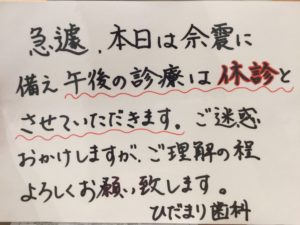 急遽、本日は余震に
備え午後の診療は休診と
させていただきます。ご迷惑
おかけしますが、ご理解の程
よろしくお願い致します。
ひだまり歯科